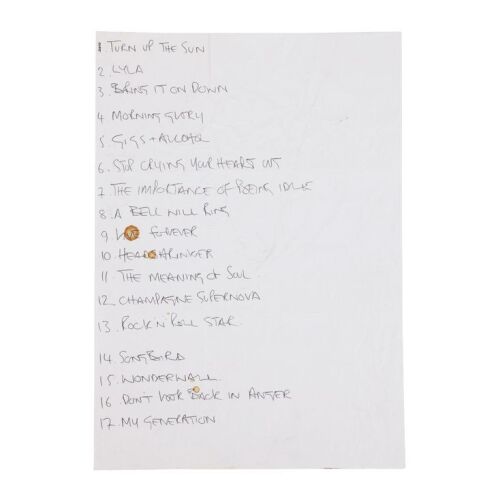 1. TURN UP THE SUN
2. LYLA
3. BRING IT ON DOWN
4 MORNING GLORY
5 CIGS + ALCOHOL
6. STOP CRYING YOUR HEART OUT
7 THE IMPORTANCE OF BEING IDLE
8. A BELL WILL RING
9 FOREVER
10. HEADSHRINKER
11. THE MEANING OF SOUL
12. CHAMPAGNE SUPERNOVA
13. ROCK'N'ROLL STAR
14. SONGBIRD
15. WONDERWALL
16 DON'T LOOK BACK IN ANGER
17. MY GENERATION